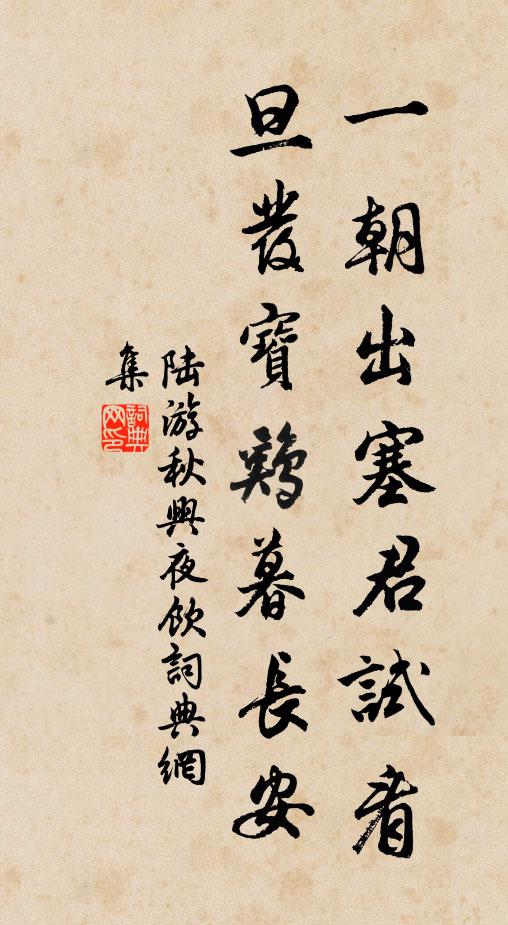 一朝出塞君試看
旦發寶鷄暮長安
陆游秋興夜飲詞典網
集
詞典网印